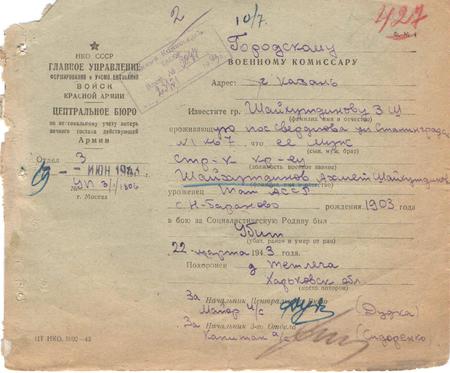 2
10/7.
427
НКО СССР
ГЛАВНОЕ УПРАВЛЕНИЕ
ФОРМИРОВАНИЯ И УКОМПЛЕКТОВАНИЯ
ВОЙСК
КРАСНОЙ АРМИИ
ЦЕНТРАЛЬНОЕ БЮРО
по персональному учету потерь
личного состава действующей
Армии
Отдел 3
ИЮН
г. Москва
Городскому
ВОЕННОМУ КОМИССАРУ
Адрес: г. Казань
Известите гр. Шайхутдинову З Ш
(фамилия, имя и отчество)
проживающую пос Свердлова ул Сталинградск
что ее муж
(сын, муж, брат)
стр-к кр-ец
Шайхутдинов Ахмет Шайхутдинов
уроженец Тат АССР
рождения 1903
в бою за Социалистическую Родину был
Убит
(убит, ранен и умер от ран)
22 марта 1943 года.
Похоронен д Тетлега
Харьковск обл
(место похорон)
За Начальник Центрального Бюро
Майор и/с (Дудка)
За Начальник 3-го Отдела
Капитан а/с (Сидоренко)